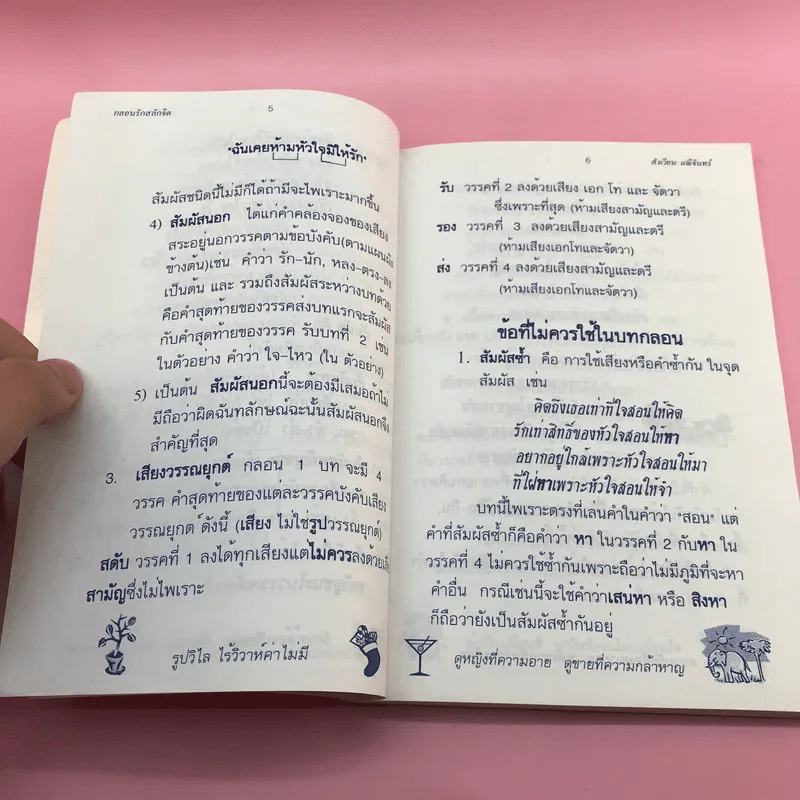 กลอนรักสลักจิต 5
"ฉันเคยห้ามหัวใจมิให้รัก"
สัมผัสชนิดนี้ไม่มีก็ได้ถ้ามีจะไพเราะมากขึ้น
4) สัมผัสนอก ได้แก่คำคล้องจองของเสียง
สระอยู่นอกวรรคตามข้อบังคับ(ตามแผนผัง
ข้างต้น)เช่น คำว่า รัก-นัก, หลง-ตรง-ลง
เป็นต้น และ รวมถึงสัมผัสระหว่างบทด้วย
คือคำสุดท้ายของวรรคส่งบทแรกจะสัมผัส
กับคำสุดท้ายของวรรค รับบทที่ 2 เช่น
ในตัวอย่าง คำว่า ใจ-ไหว (ใน ตัวอย่าง)
5) เป็นต้น สัมผัสนอกนี้จะต้องมีเสมอถ้าไม่
มีถือว่าผิดฉันทลักษณ์ฉะนั้นสัมผัสนอกจึง
สำคัญที่สุด
3. เสียงวรรณยุกต์ กลอน 1 บท จะมี 4
วรรค คำสุดท้ายของแต่ละวรรคบังคับเสียง
วรรณยุกต์ ดังนี้ (เสียง ไม่ใช่รูปวรรณยุกต์)
สดับ วรรคที่ 1 ลงได้ทุกเสียงแต่ไม่ควรลงด้วยเสียง
สามัญซึ่งไม่ไพเราะ
รูปวิไล ไร้วิวาห์ค่าไม่มี
6 สัมเวียน มณีจันทร์
รับ วรรคที่ 2 ลงด้วยเสียง เอก โท และ จัตวา
ซึ่งเพราะที่สุด (ห้ามเสียงสามัญและตรี)
รอง วรรคที่ 3 ลงด้วยเสียงสามัญและตรี
(ห้ามเสียงเอกโทและจัตวา)
ส่ง วรรคที่ 4 ลงด้วยเสียงสามัญและตรี
(ห้ามเสียงเอกโทและจัตวา)
ข้อที่ไม่ควรใช้ในบทกลอน
1. สัมผัสซ้ำ คือ การใช้เสียงหรือคำซ้ำกัน ในจุด
สัมผัส เช่น
คิดถึงเธอเท่าที่ใจสอนให้คิด
รักเท่าสิทธิ์ของหัวใจสอนให้หา
อยากอยู่ใกล้เพราะหัวใจสอนให้มา
ที่ใฝ่หาเพราะหัวใจสอนให้จำ
บทนี้ไพเราะตรงที่เล่นคำในคำว่า "สอน" แต่
คำที่สัมผัสซ้ำก็คือคำว่า หา ในวรรคที่ 2 กับหา ใน
วรรคที่ 4 ไม่ควรใช้ซ้ำกันเพราะถือว่าไม่มีภูมิที่จะหา
คำอื่น กรณีเช่นนี้จะใช้คำว่าเสน่หา หรือ สิงหา
ก็ถือว่ายังเป็นสัมผัสซ้ำกันอยู่
ดูหญิงที่ความอาย ดูชายที่ความกล้าหาญ